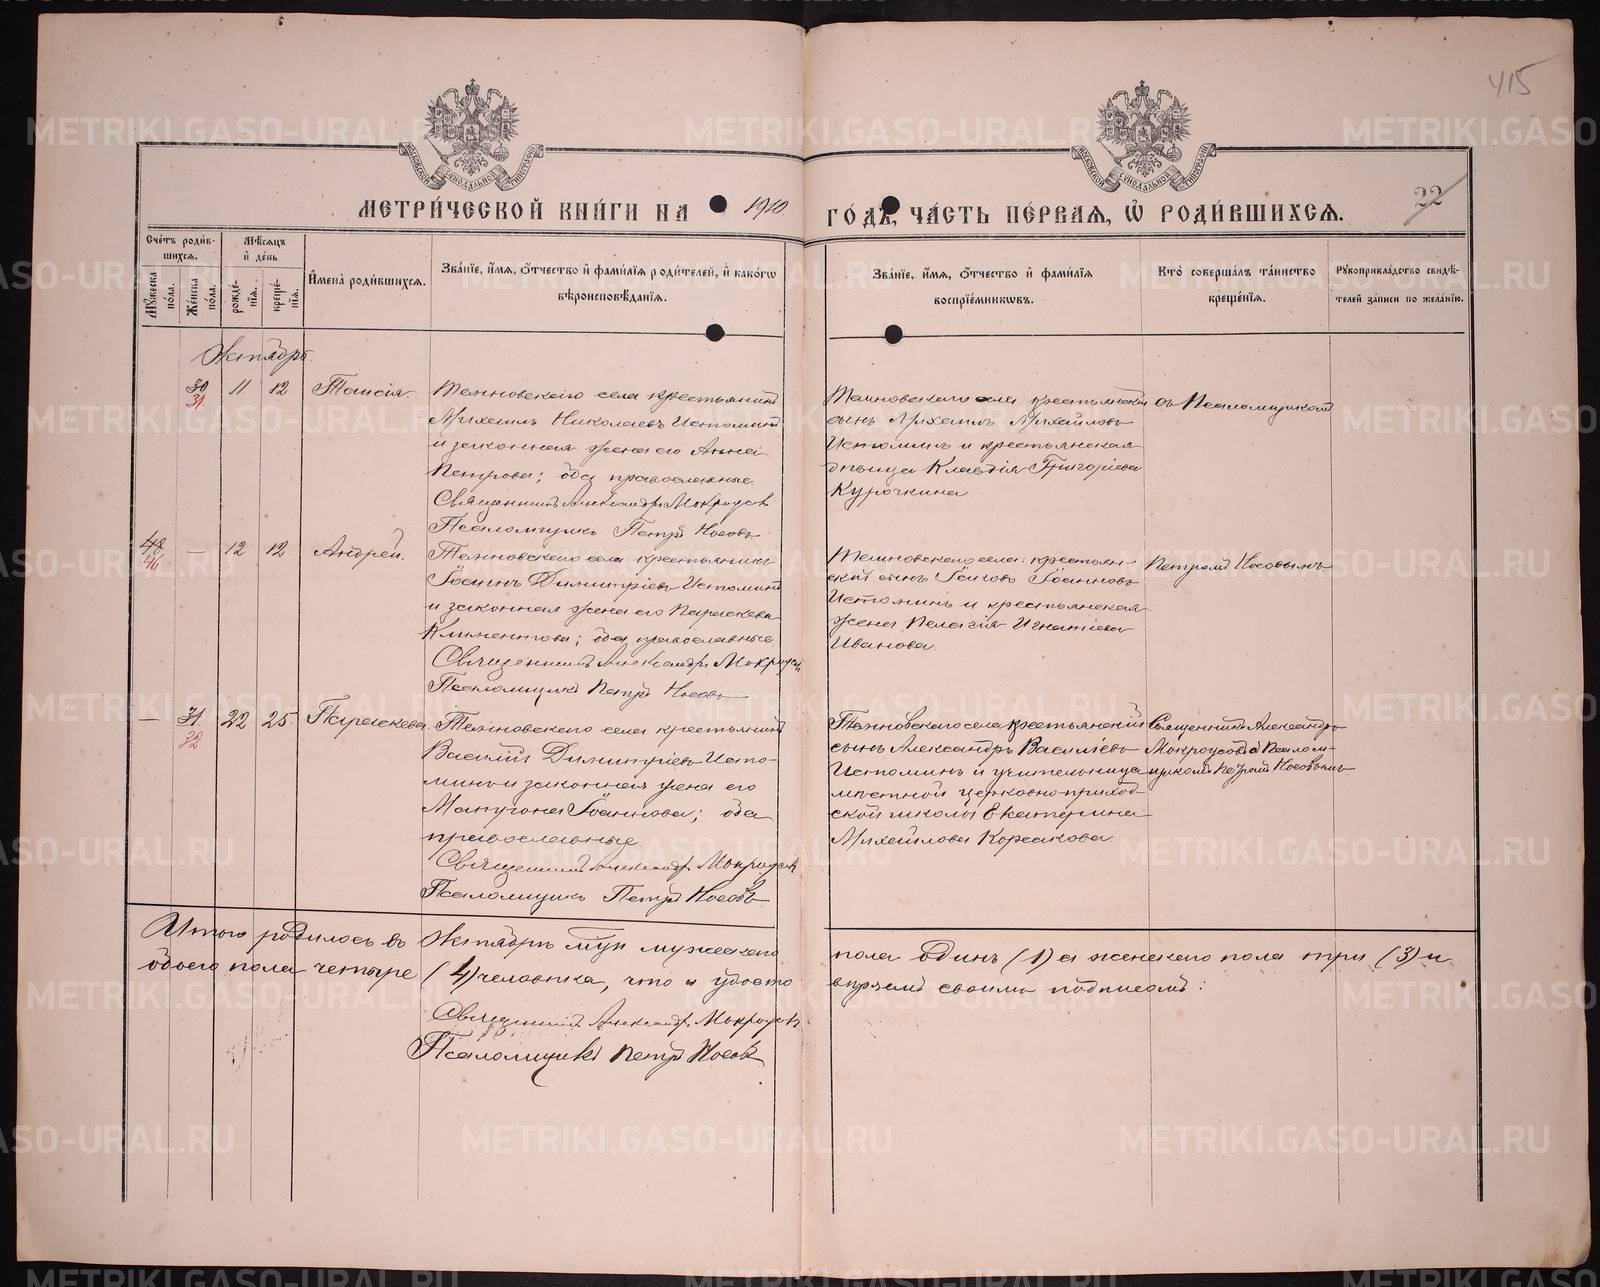 415
МОСКОВСКОЙ СѴНОДАЛЬНОЙ ТИПОГРАФІИ
МОСКОВСКОЙ СѴНОДАЛЬНОЙ ТИПОГРАФІИ
МЕТРИ́ЧЕСКОЙ КНИ́ГИ НА 1910
ГО́ДЪ, ЧА́СТЬ ПЕ́РВАЯ, Ѡ҆ РОДИ́ВШИХСЯ.
22
Сче́тъ роди́в-
шихся.
Мѣ́сяцъ
и҆ де́нь
Мꙋ́жеска
по́ла.
Же́нска
по́ла.
рожде́-
нїя.
креще́-
нїя.
И҆мена̀ роди́вшихся.
Зва́нїе, и҆́мя, ѻ҆́тчество и҆ фами́лїя роди́телей, и҆ како́гѡ
вѣроисповѣ́данїя.
Зва́нїе, и҆́мя, ѻ҆́тчество и҆ фами́лїя
воспрїе́мникѡвъ.
Кто̀ соверша́лъ та́инство
креще́нїя.
Рꙋкоприкла́дство свидѣ́-
телей за́писи по жела́нїю.
Октябрь.
30 11 12 Таисія.
31.
Темновскаго села крестьянинъ
Михаилъ Николаевъ Истоминъ
и законная жена его Анна
Петрова; оба православные.
Священникъ Александръ Мокроусовъ
Псаломщикъ Петръ Носовъ
Темновскаго села крестьянскій
сынъ Михаилъ Михайловъ
Истоминъ и крестьянская
дѣвица Клавдія Григоріева
Курочкина
съ Псаломщикомъ
48 — 12 12 Андрей.
46
Темновскаго села крестьянинъ
Іоаннъ Димитріевъ Истоминъ
и законная жена его Параскева
Климентова; оба православные
Священникъ Александръ Мокроусовъ
Псаломщикъ Петръ Носовъ
Темновскаго села: крестьян-
скій сынъ Іаковъ Іоанновъ
Истоминъ и крестьянская
жена Пелагія Игнатіева
Иванова.
Петромъ Носовымъ
— 31. 22 25. Параскева
32.
Темновскаго села крестьянинъ
Василій Димитріевъ Исто-
минъ и законная жена его
Матрона Іоаннова; оба
православные
Священникъ Александръ Мокроусовъ
Псаломщикъ Петръ Носовъ.
Темновскаго села крестьянскій
сынъ Александръ Василіевъ
Истоминъ и учительница
мѣстной церковно-приход-
ской школы Екатерина
Михайлова Корсакова.
Священникъ Александръ
Мокроусовъ съ Псалом-
щикомъ Петромъ Носовымъ
Итого родилось въ Октябрѣ м-цѣ мужескаго
пола Одинъ (1) а женскаго пола три (3) и
обоего пола четыре (4) человѣка, что и удосто
вѣряемъ своимъ подписомъ:
Священникъ Александръ Мокроусовъ
Псаломщикъ Петръ Носовъ
METRIKI.GASO-URAL.RU